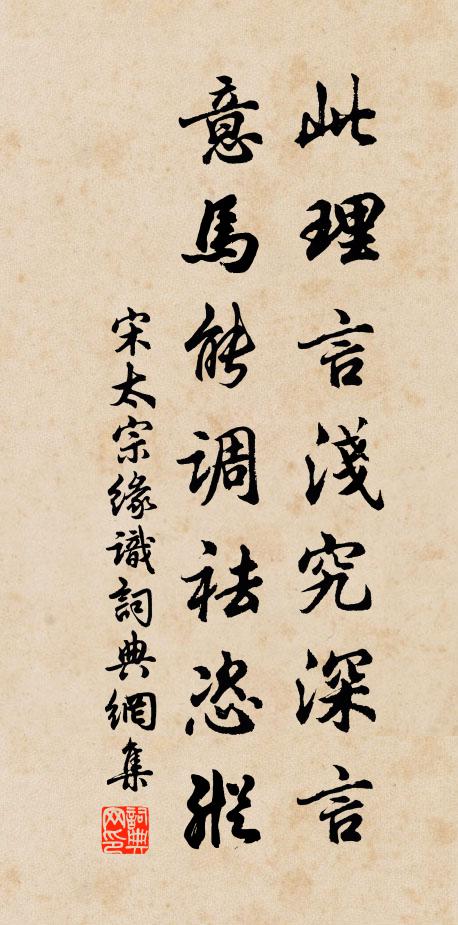 此理言淺究深言
意馬能調祛恣縱
宋太宗緣識詞典網集
詞典网印